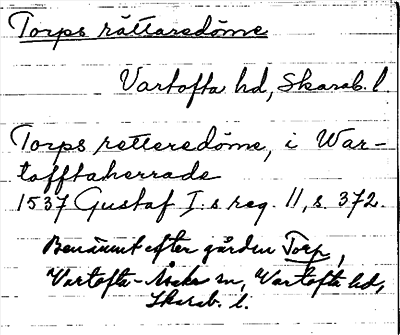 Torps rättaredöme
Vartofta hd, Skarab. l.
Torps retteredöme, i War-
tofftaherrade
1537 Gustaf I:s reg. 11, s. 372.
Benämnt efter gården Torp,
Vartofta-Åsaka sn, Vartofta hd,
Skarab. l.